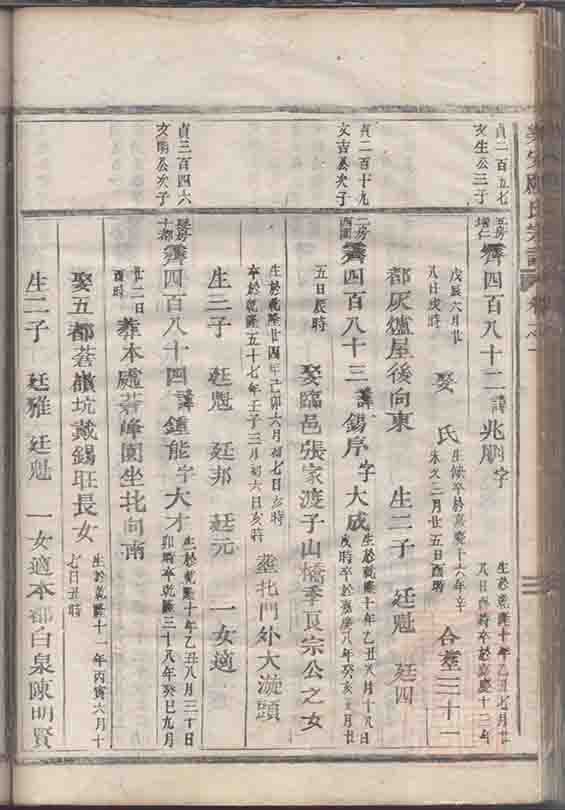 貞二百五七
亥生公三子
霽四百八十二諱兆剛字
生於乾隆十年乙丑七月廿
八日酉時卒於嘉慶十三年
戊辰六月廿
八日戌時
娶 氏
生 卒於嘉慶十六年辛
未又三月廿五日酉時
合塟三十一
都灰爐屋後向東 生二子 廷魁 廷四
貞二百十九
文吉公次子
二房
霽四百八十三諱錫序字大成
生於乾隆十年乙丑 月十八日
時卒於嘉慶八年癸亥 月廿
五日辰時
娶臨邑張家渡子山橋季良宗公之女
生於乾隆廿四年己卯六月初七日亥時
卒於乾隆五十七年壬子三月初六日亥時
塟北門外大漩頭
生三子 廷魁 廷邦 廷元 一女適
貞三百四六
亥明公次子
房
十都
霽四百八十四諱鍾能字大才
生於乾隆十年乙丑八月三十日
卯時卒乾隆三十八年癸巳九月
廿二日
酉時
葬本處若峰園坐北向南
娶五都蒼嶺坑戴錫玨長女
生於乾隆十一年丙寅六月十
七日丑時
生二子 廷雅 廷魁 一女適本都白泉陳明賢